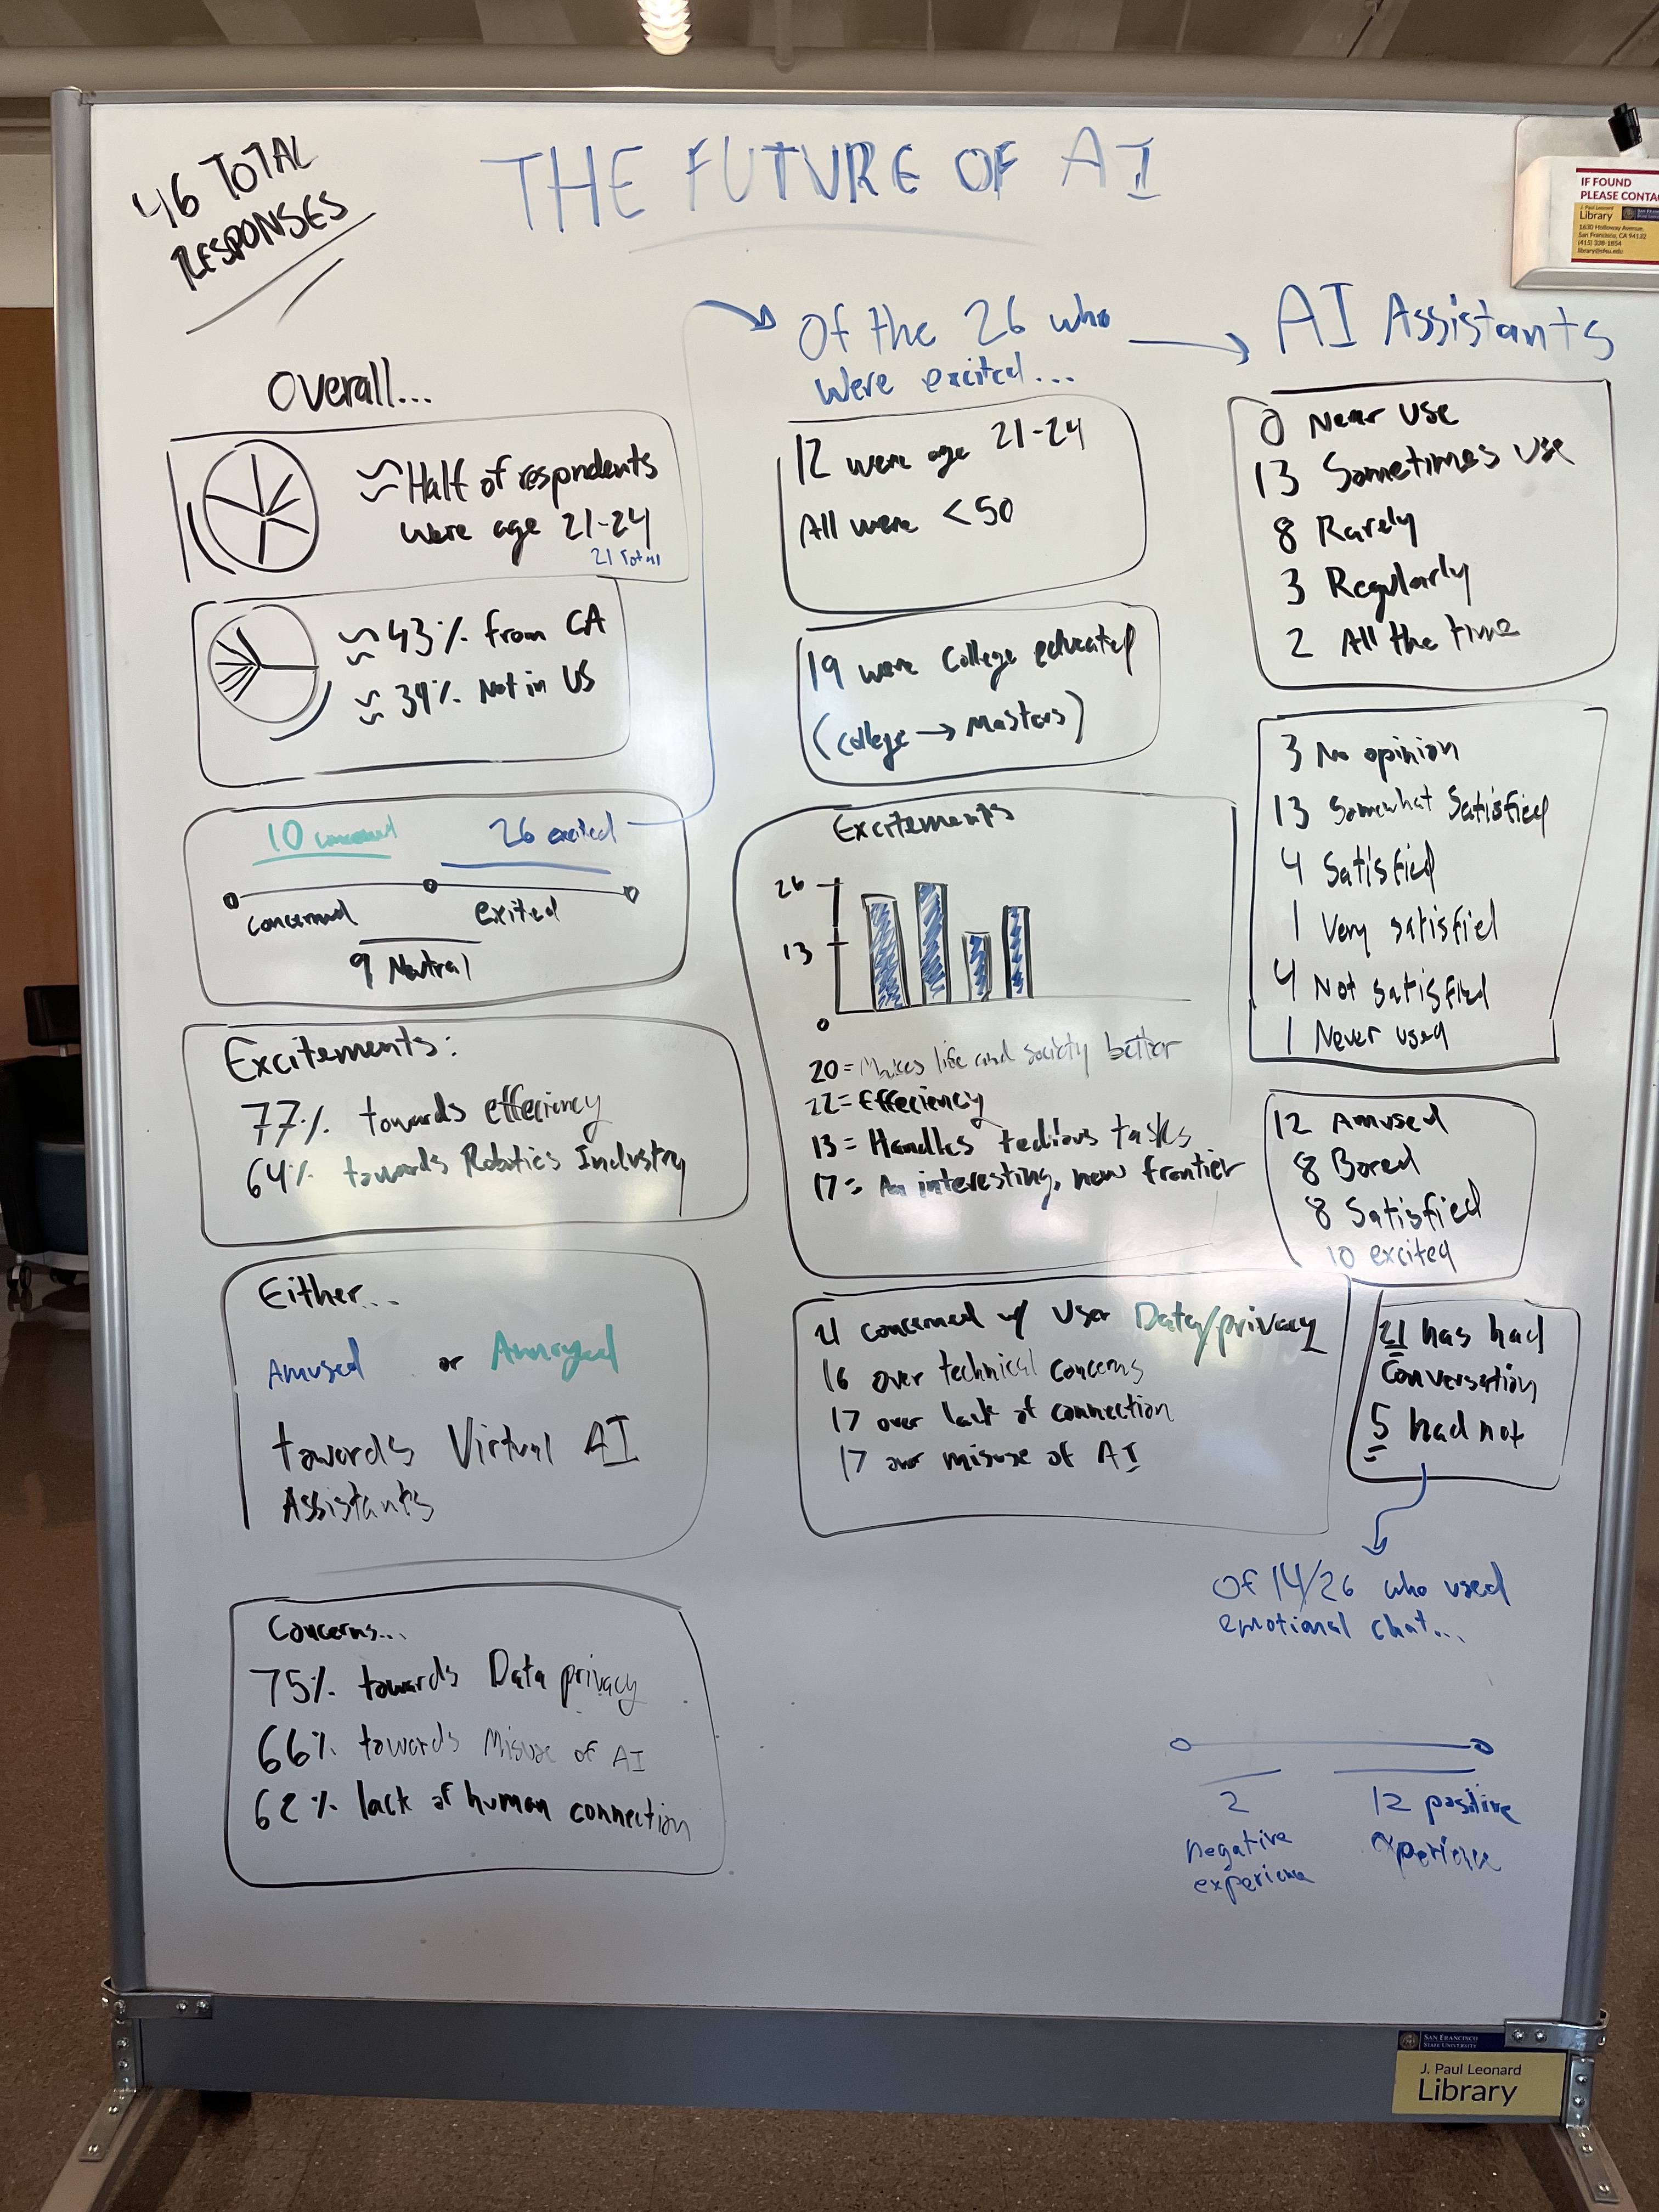 46 TOTAL
RESPONSES
THE FUTURE OF AI
IF FOUND
PLEASE CONTA
J. Paul Leonard
Library
1630 Holloway Avenue,
San Francisco, CA 94132
(415) 338-1854
library@sfsu.edu
Overall...
≈ Half of respondents
were age 21-24
21 Total
≈ 43% from CA
≈ 39% Not in US
10 concerned
26 excited
concerned
exited
9 Neutral
Excitements:
77% towards effeciency
64% towards Robotics Industry
Either...
Amused or Annoyed
towards Virtual AI
Assistants
Concerns...
75% towards Data privacy
66% towards Misuse of AI
62% lack of human connection
Of the 26 who
were excited...
12 were age 21-24
All were <50
19 were College educated
(college → Masters)
Excitements
26
13
0
20 = Makes life and society better
22 = Effeciency
13 = Handles tedious tasks
17 = An interesting, new frontier
21 concerned w/ User Data/privacy
16 over technical concerns
17 over lack of connection
17 over misuse of AI
AI Assistants
0 Near use
13 Sometimes use
8 Rarely
3 Regularly
2 All the time
3 No opinion
13 Somewhat Satisfied
4 Satisfied
1 Very satisfied
4 Not satisfied
1 Never used
12 Amused
8 Bored
8 Satisfied
10 excited
21 has had
Conversation
5 had not
Of 14/26 who used
emotional chat...
2
negative
experience
12 positive
experience
SAN FRANCISCO
STATE UNIVERSITY
J. Paul Leonard
Library